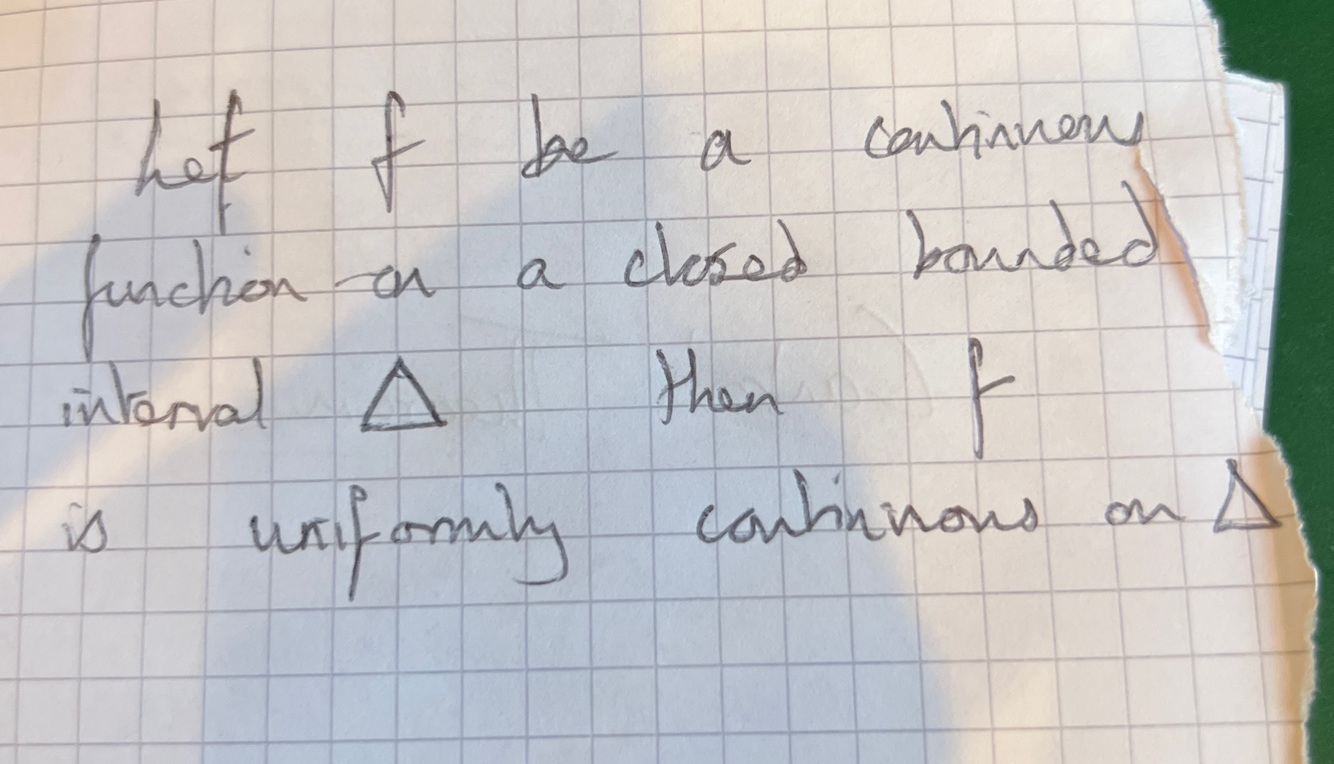 Let f be a continuous
function on a closed bounded
interval Δ then f
is uniformly continuous on Δ